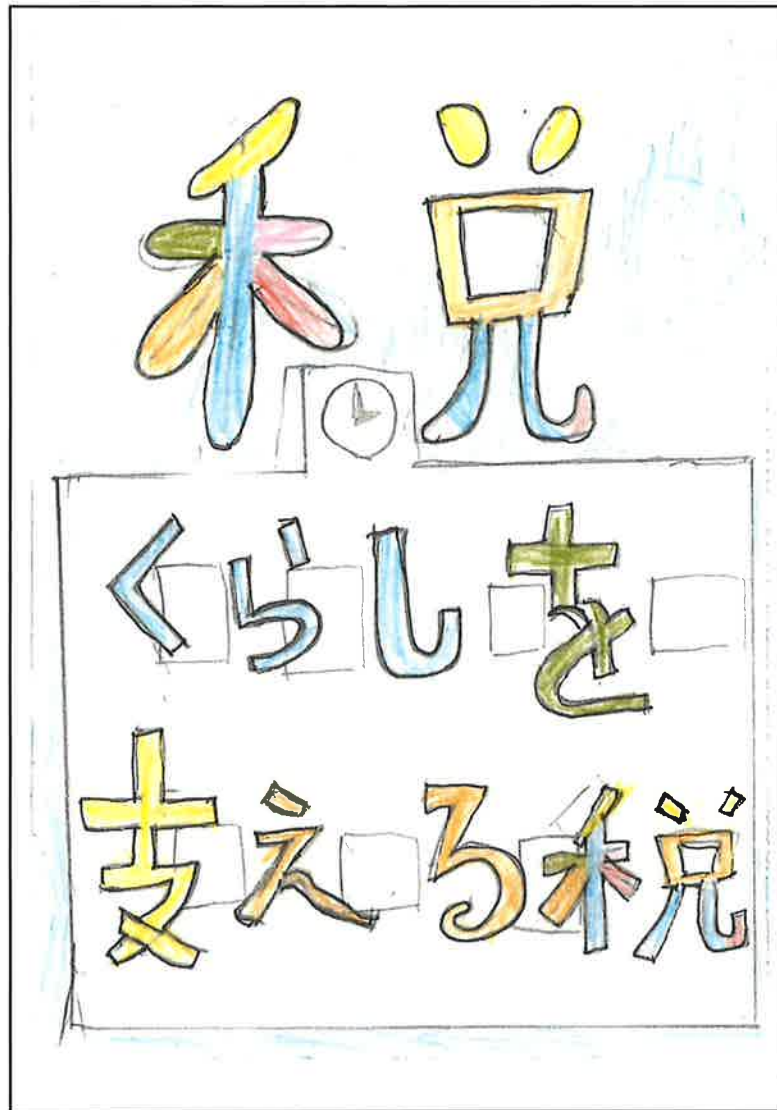 税
くらしを
支える税